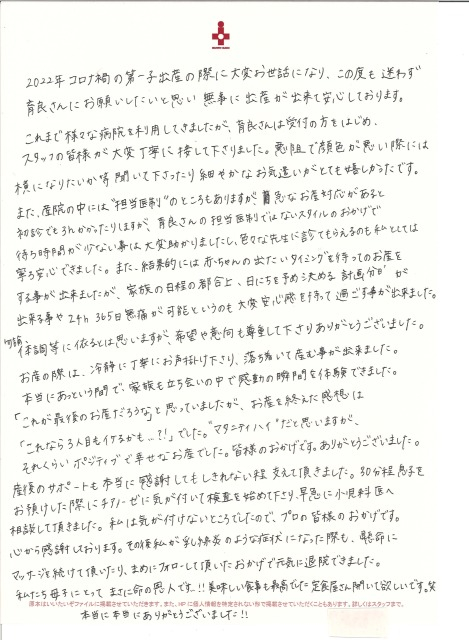 2022年コロナ禍の第一子出産の際に大変お世話になり、この度も迷わず
育良さんにお願いしたいと思い無事に出産が出来て安心しております。
これまで様々な病院を利用してきましたが、育良さんは受付の方をはじめ、
スタッフの皆様が大変丁寧に接して下さりました。悪阻で顔色が悪い際には
横になりたいか等聞いて下さったり細やかなお気遣いがとても嬉しかったです。
また、産院の中には"担当医制"のところもありますが緊急なお産対応があると
初診でも3hかかったりしますが、育良さんの担当医制ではないスタイルのおかげで
待ち時間が少ない事は大変助かりましたし、色々な先生に診てもらえるのも私としては
寧ろ安心できました。また、結果的には赤ちゃんの出たいタイミングを待ってのお産を
する事が出来ましたが、家族の日程の都合上、日にちを予め決める"計画分娩"が
出来る事や24h 365日無痛が可能というのも大変安心感を持って過ごす事が出来ました。
勿論、体調等に依るとは思いますが、希望や意向も尊重して下さりありがとうございました。
お産の際は、冷静に丁寧にお声掛け下さり、落ち着いて産む事が出来ました。
本当にあっという間で、家族も立ち会いの中で感動の瞬間を体験できました。
「これが最後のお産だろうな」と思っていましたが、お産を終えた感想は
「これなら3人目もイケるかも…?!」でした。"マタニティハイ"だと思いますが、
それくらいポジティブで幸せなお産でした。皆様のおかげです。ありがとうございました。
産後のサポートも本当に感謝してもしきれない程支えて頂きました。30分程息子を
お預けした際にチアノーゼに気が付いて検査を始めて下さり、早急に小児科医へ
相談して頂きました。私は気が付けないところでしたので、プロの皆様のおかげです。
心から感謝しております。その後私が乳腺炎のような症状になった際も、懸命に
マッサージを続けて頂いたり、まめにフォローして頂いたおかげで元気に退院できました。
私たち母子にとって まさに命の恩人です…!! 美味しい食事も最高でした 定食屋さん開いて欲しいです。笑
原本はいいたいぞファイルに掲載させていただきます。また、HPに個人情報を特定されない形で掲載させていただくこともあります。詳しくはスタッフまで。
本当に本当にありがとうございました!!